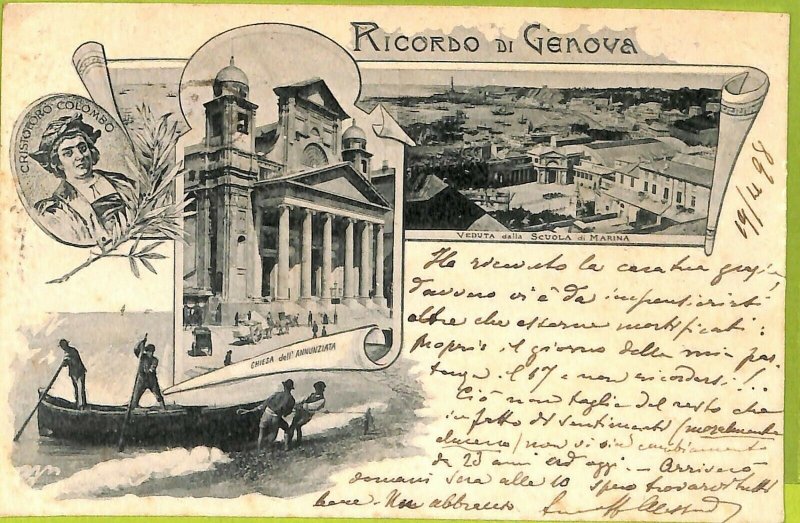 RICORDO DI GENOVA
CRISTOFORO COLOMBO
VEDUTA dalla SCUOLA di MARINA
CHIESA dell' ANNUNZIATA
19/4 98
Ho ricevuto la cara tua grazie,
davvero vi è da impensierirsi
altre che esserne mortificati:
Proprio il giorno della mia par
tenza il 17 e non ricordarsi!..
Ciò non toglie del resto che
in fatto di sentimenti (moralmente
almeno) non vi sia cambiamento
da 23 anni ad oggi. — Arriverò
domani sera alle 10 spero trovarvi tutti
bene. Un abbraccio